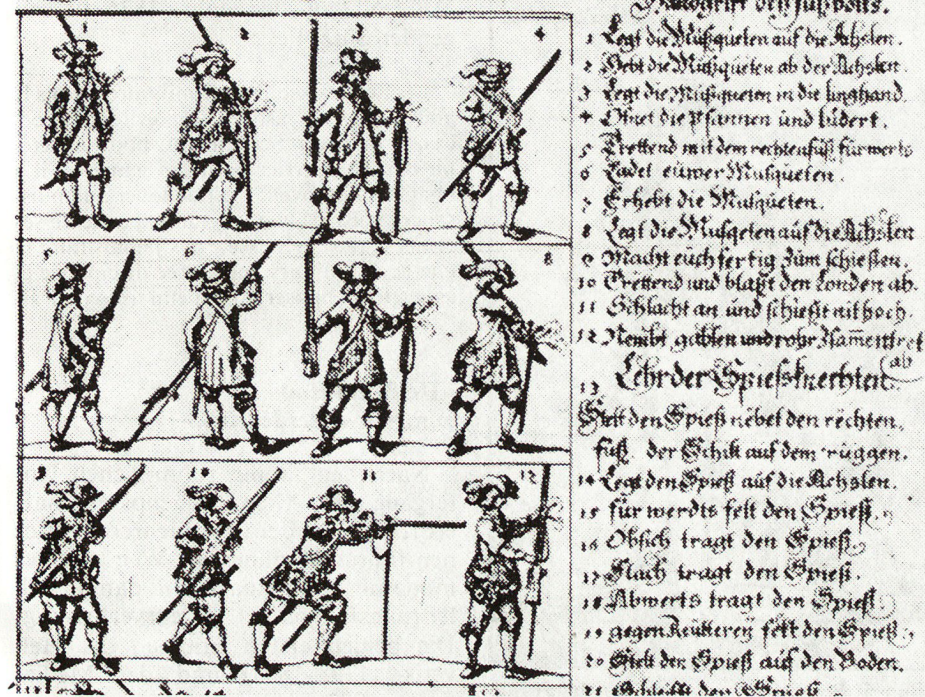 1 2 3 4
5 6 7 8
9 10 11 12
Handgriff deß fußvolks.
1 Legt die Mußqueten auf die Achslen.
2 Hebt die Mußqueten ab der Achslen.
3 Legt die Mußqueten in die linghand.
4 Ofnet die Pfannen und ludert.
5 Trettend mit dem rechten fuß fürwerts
6 Ladet eüwer Musqueten.
7 Erhebt die Musqueten.
8 Legt die Musqeten auf die Achslen
9 Macht euch fertig zum schießen.
10 Trettend und blaßt den Londen ab.
11 Schlacht an und schießt nit hoch.
12 Nembt gablen und rohr
13 Lehr der Spießknechten.
Stelt den Spieß nebet den rechten
fuß der Schilt auf dem ruggen.
14 Legt den Spieß auf die Achslen.
15 fürwerdts felt den Spieß.
16 Obsich tragt den Spieß
17 Flach tragt den Spieß.
18 Abwerts tragt den Spieß
19 gegen Reütteren felt den Spieß
20 Stelt den Spieß auf den Boden.
21 den Spieß